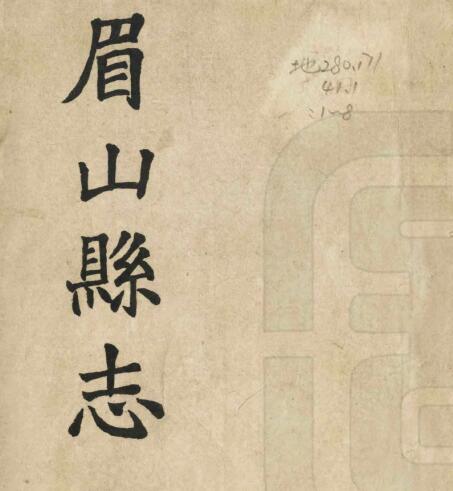 眉山縣志
地280.171
41.1
:1~8